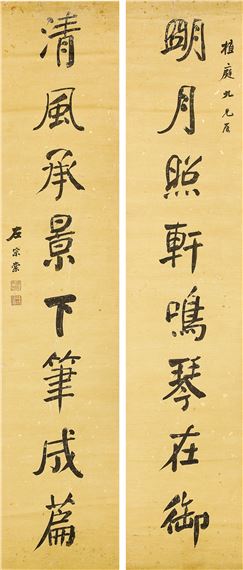 植庭九兄
明月照軒鳴琴在御
清風承景下筆成篇
左宗棠